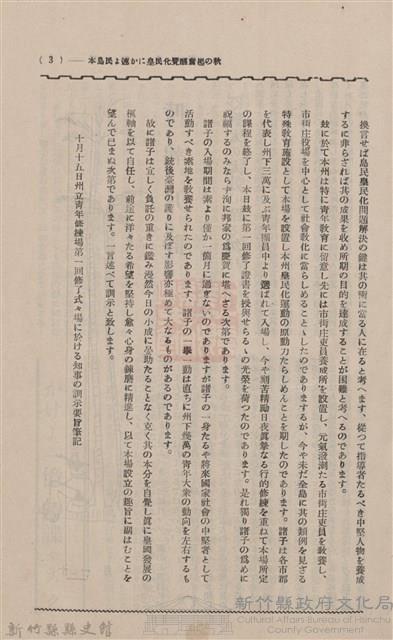 本島民よ速かに皇民化覺醒奮起の秋 ── (３)
換言せば島民皇民化問題解決の鍵は其の衝に當る人に在ると考へます、從つて指導者たるべき中堅人物を養成
するに非らざれば其の成果を收め所期の目的を達成することが困難と考へるのであります。
玆に於て本州は特に青年教育に留意し先には市街庄吏員養成所を設置し、元氣潑溂たる市街庄吏員を教養し、
市街庄役場を中心として社會教化に當らしめることゝしたのでありますが、今や未だ全島に其の類例を見ざる
特殊教育施設として本場を設置し本州皇民化運動の原動力たらしめんことを期したのであります。諸子は各市郡
を代表し州下三萬に及ぶ青年團員中より選ばれて入場し、今や刻苦精勵日夜眞摯なる行的修練を重ねて本場所定
の課程を終了し、本日玆に第一回修了證書を授與せらるゝの光榮を荷つたのであります。是れ獨り諸子の爲めに
祝福するのみならず洵に邦家の爲慶賀に堪へざる次第であります。
諸子の入場期間は素より僅か一箇月に過ぎないのでありますが諸子の一身たるや將來國家社會の中堅者として
活動すべき素地を教養せられたのであります、諸子の一擧一動は直ちに州下幾萬の青年大衆の動向を左右するも
のであり、銃後臺灣の護りに及ぼす影響亦極めて大なるものがあるのであります。
故に諸子は宜しく負託の重きに鑑み漫然今日の小成に晏如たることなく克く其の本分を自覺し眞に皇國發展の
樞軸を以て自任し、前途に洋々たる希望を堅持し愈々心身の鍊磨に精進し、以て本場設立の趣旨に副はむことを
望んで已まぬ次第であります。一言述べて訓示と致します。
十月十五日州立青年修練場第一回修了式々場に於ける知事の訓示要旨筆記
新竹縣政府文化局
Cultural Affairs Bureau of Hsinchu County Government
新竹縣縣史館